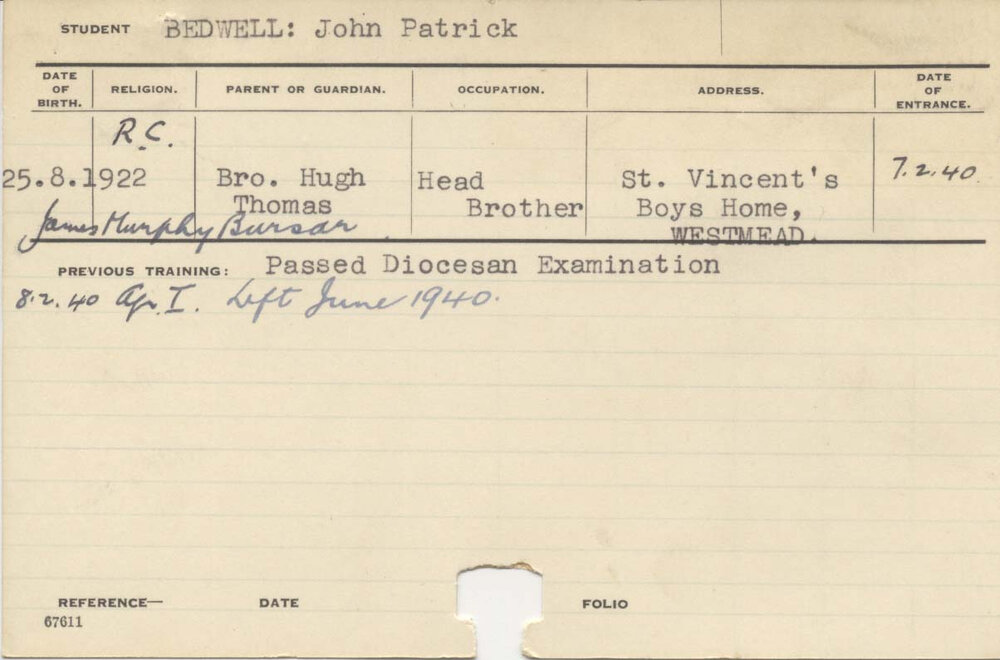 STUDENT BEDWELL: John Patrick
DATE OF BIRTH. RELIGION. PARENT OR GUARDIAN. OCCUPATION. ADDRESS. DATE OF ENTRANCE.
R.C.
25.8.1922 Bro. Hugh Head St. Vincent's 7.2.40
Thomas Brother Boys Home,
James Murphy Bursar WESTMEAD.
PREVIOUS TRAINING: Passed Diocesan Examination
8.2.40 Ag. I. Left June 1940.
REFERENCE— DATE FOLIO
67611